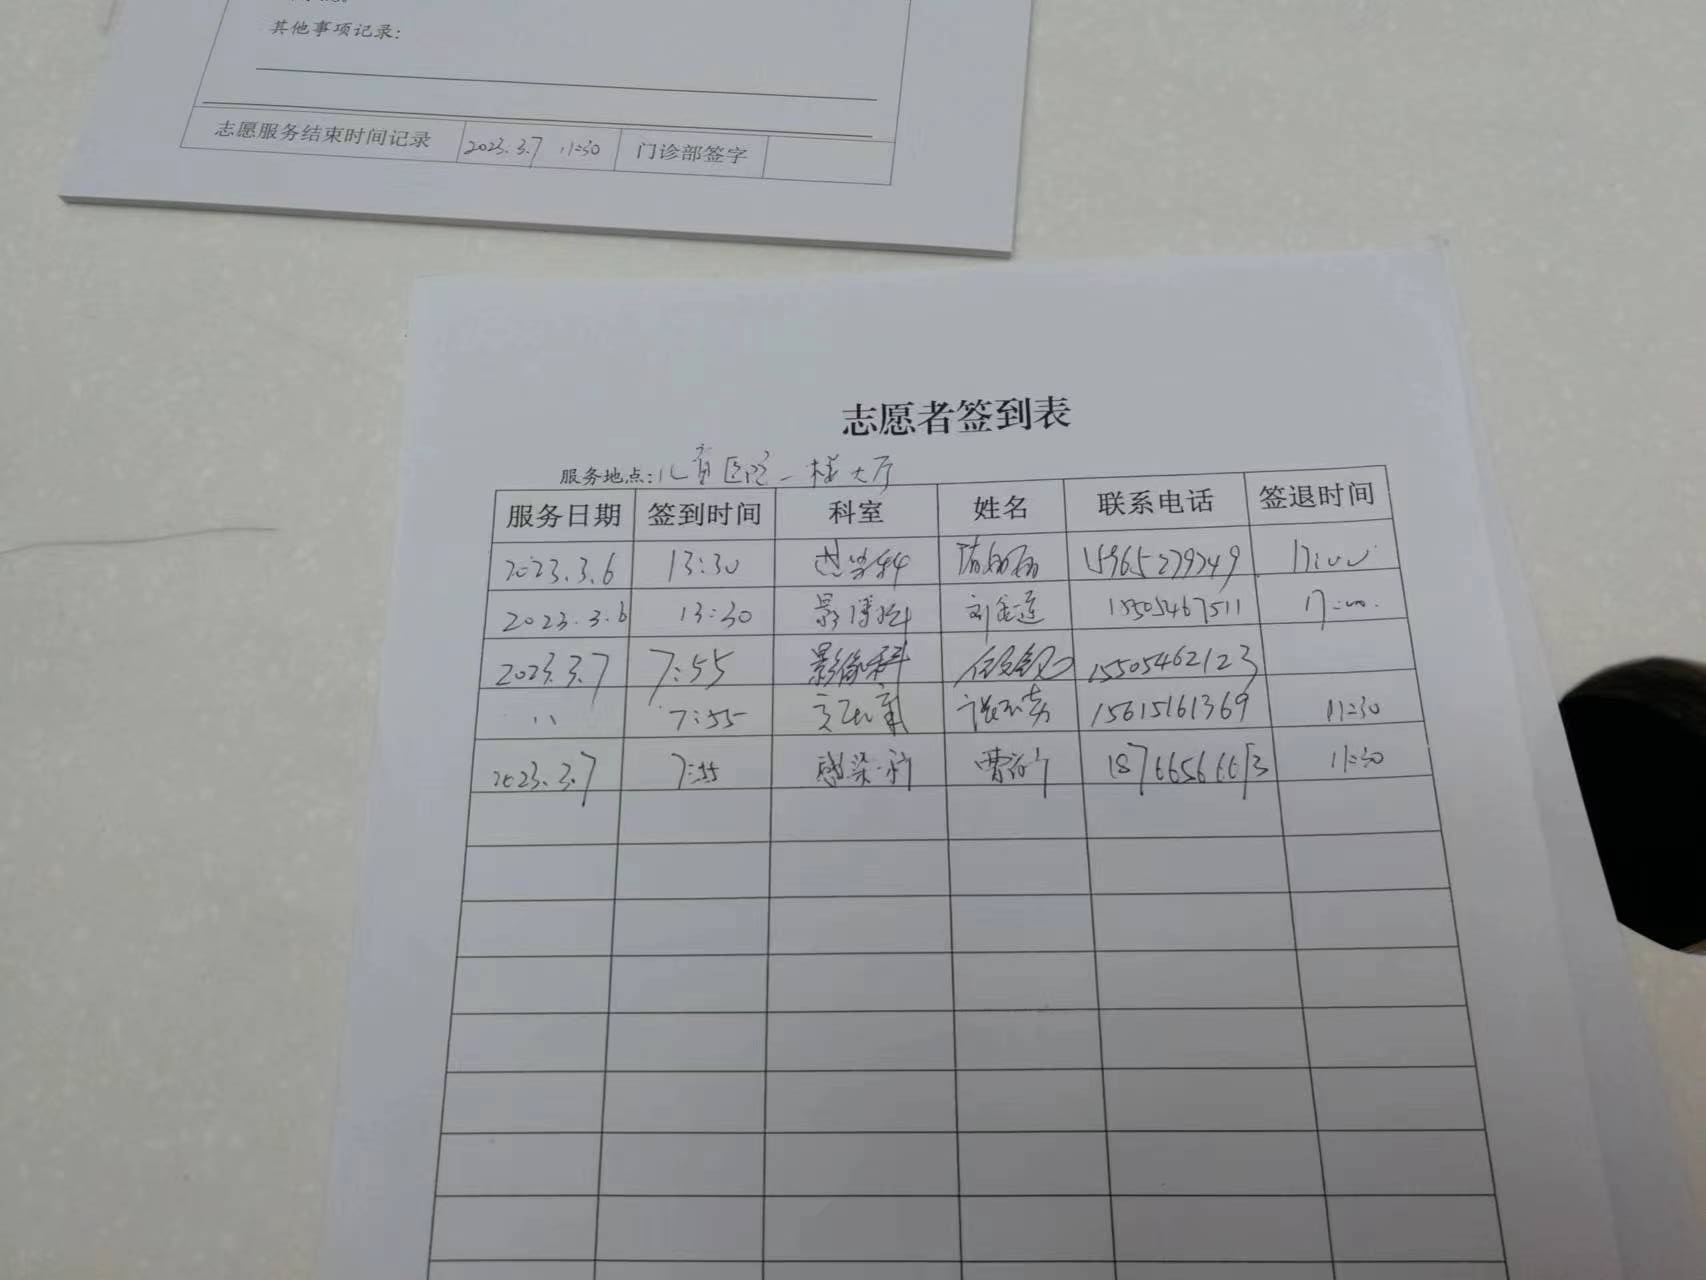 其他事项记录:
志愿服务结束时间记录 2023.3.7 11:30 门诊部签字
志愿者签到表
服务地点:儿童医院一楼大厅
服务日期 签到时间 科室 姓名 联系电话 签退时间
2023.3.6 13:30 17:00
2023.3.6 13:30 刘金莲 15505467511 17:00.
2023.3.7 7:55 影像科 15505462123
\\ 7:55 15615161369 11:30
2023.3.7 7:55 感染科 11:30